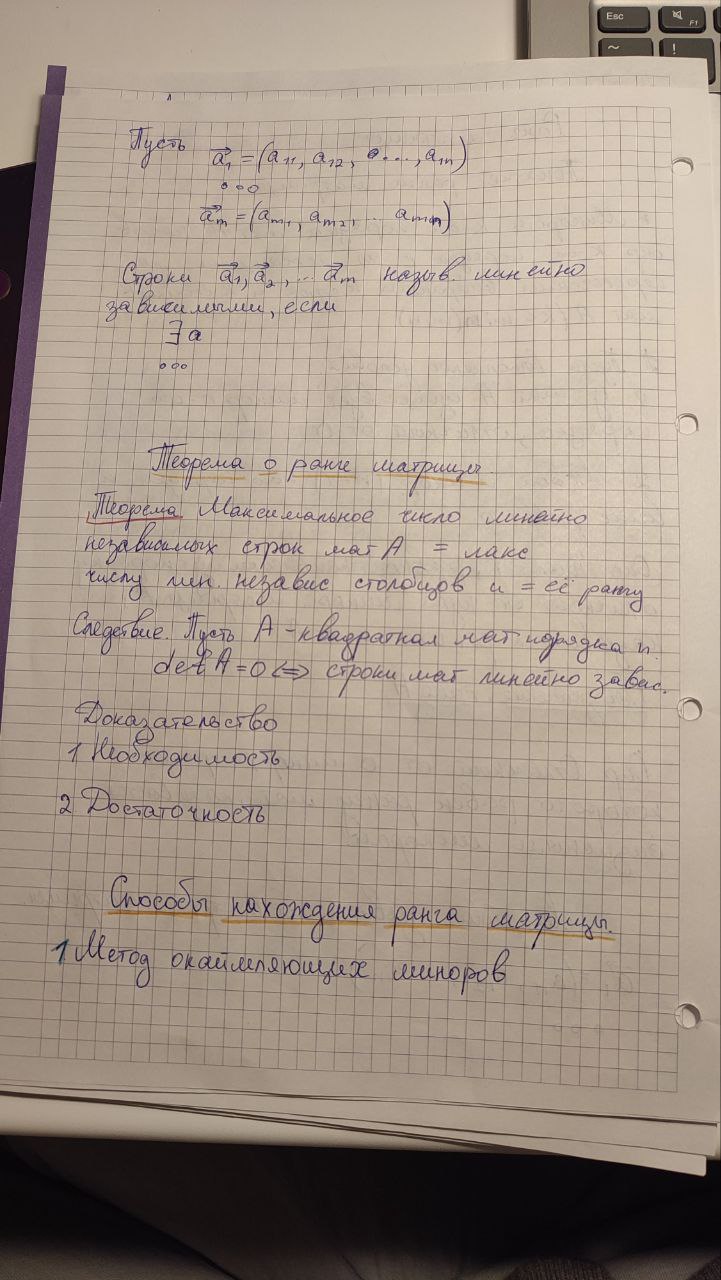 Пусть a⃗₁ = (a₁₁, a₁₂, ..., a₁ₙ)
...
a⃗ₘ = (aₘ₁, aₘ₂, ... aₘₙ)
Строки a⃗₁, a⃗₂, ... a⃗ₘ назыв. линейно
зависимыми, если
∃ a
...
Теорема о ранге матрицы.
Теорема. Максимальное число линейно
независимых строк мат A = макс
числу лин. независ столбцов и = её рангу
Следствие. Пусть A - квадратная мат порядка n.
det A = 0 <=> строки мат линейно завис.
Доказательство
1 Необходимость
2 Достаточность
Способы нахождения ранга матрицы.
1 Метод окаймляющих миноров
Esc
F1
~
!